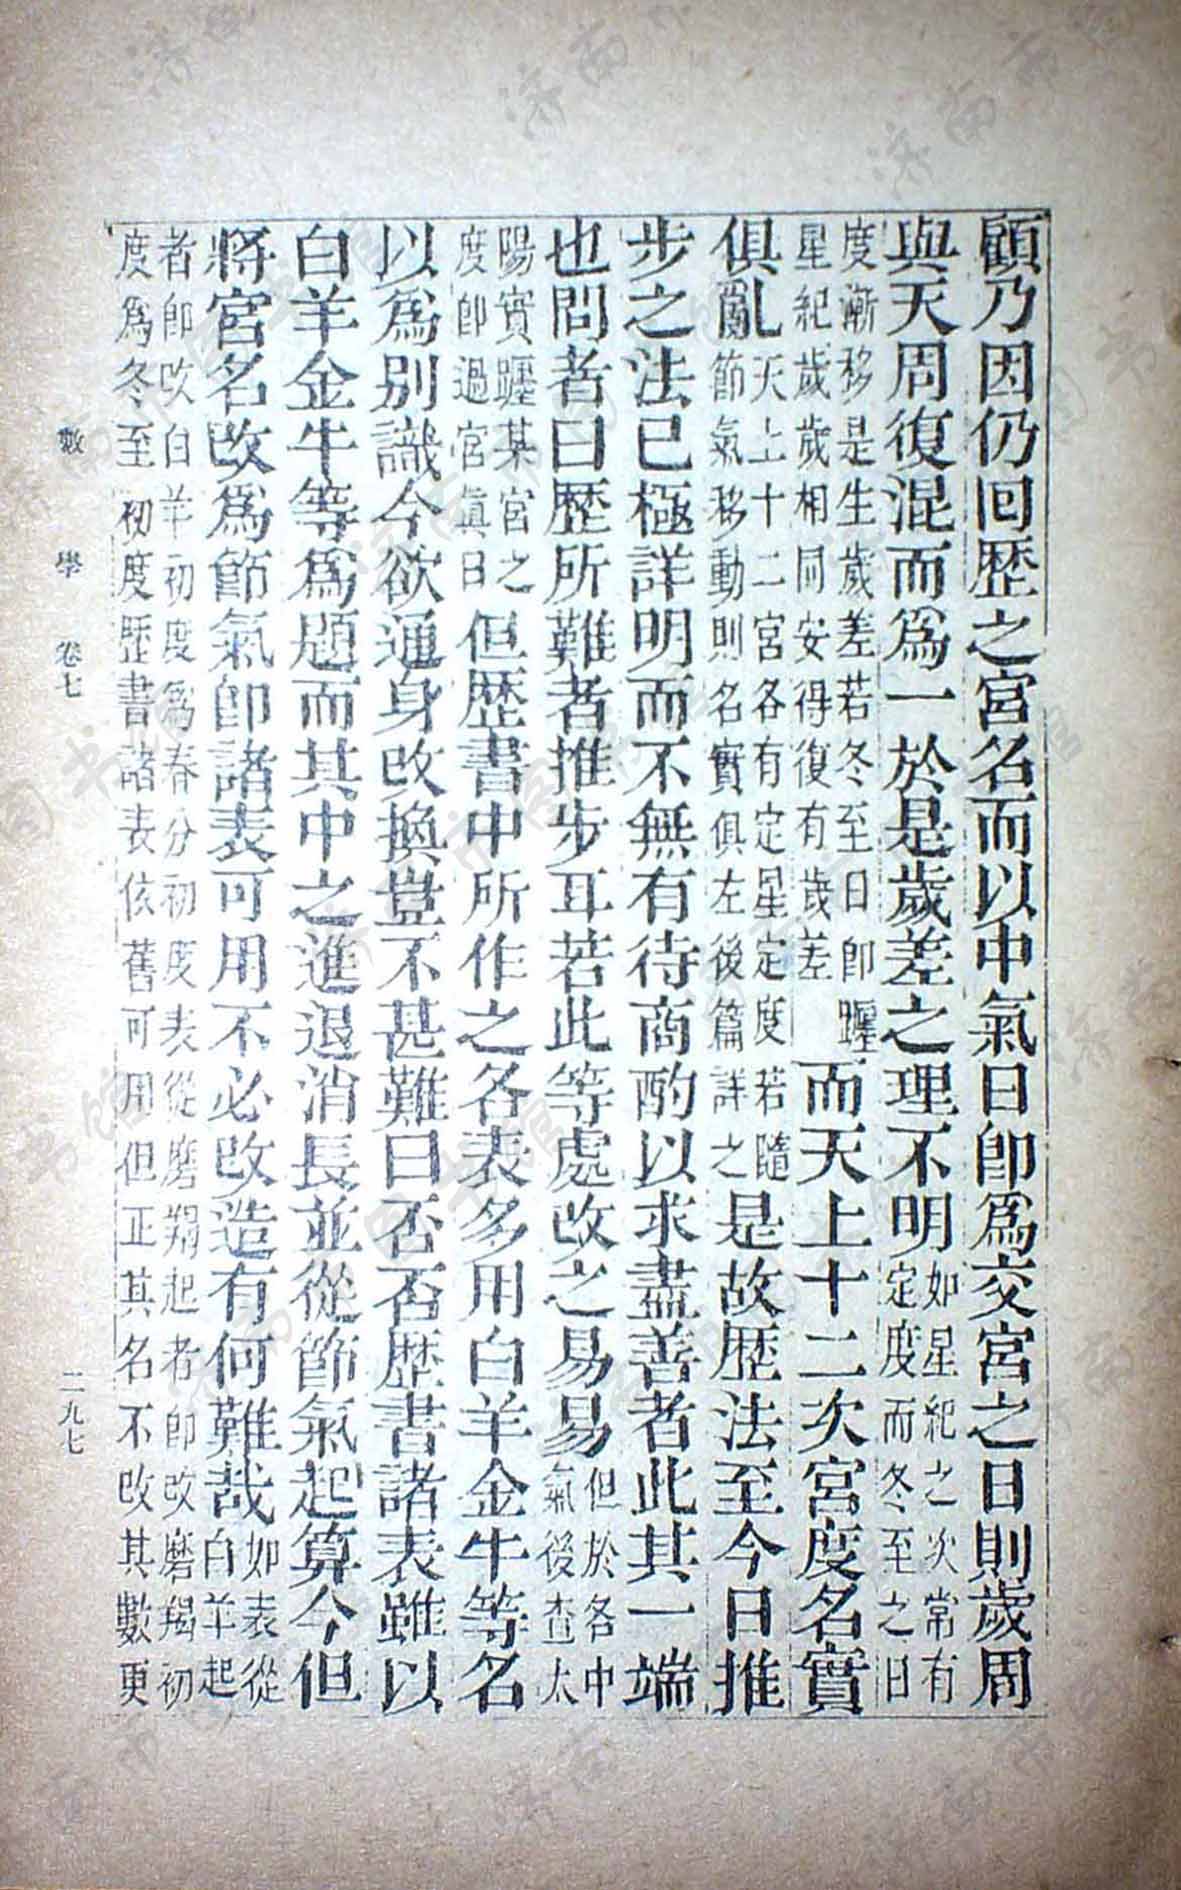 顧乃因仍回歴之宮名而以中氣日卽爲交宮之日則歲周
與天周復混而爲一於是歲差之理不明如星紀之次常有定度而冬至之日
度漸移是生歲差若冬至日卽躔星紀歲歲相同安得復有歲差而天上十二次宮度名實
俱亂天上十二宮各有定星定度若隨節氣移動則名實俱左後篇詳之是故歴法至今日推
步之法已極詳明而不無有待商酌以求盡善者此其一端
也問者曰歴所難者推步耳若此等處改之易易但於各中氣後查太
陽實躔某宮之度卽過宮眞日但歴書中所作之各表多用白羊金牛等名
以爲別識今欲通身改換豈不甚難曰否否歴書諸表雖以
白羊金牛等爲題而其中之進退消長並從節氣起算今但
將宮名改爲節氣卽諸表可用不必改造有何難哉如表從白羊起
者卽改白羊初度爲春分初度表從磨羯起者卽改磨羯初度爲冬至初度歴書諸表依舊可用但正其名不改其數更
數學 卷七 二九七
济南市图书馆